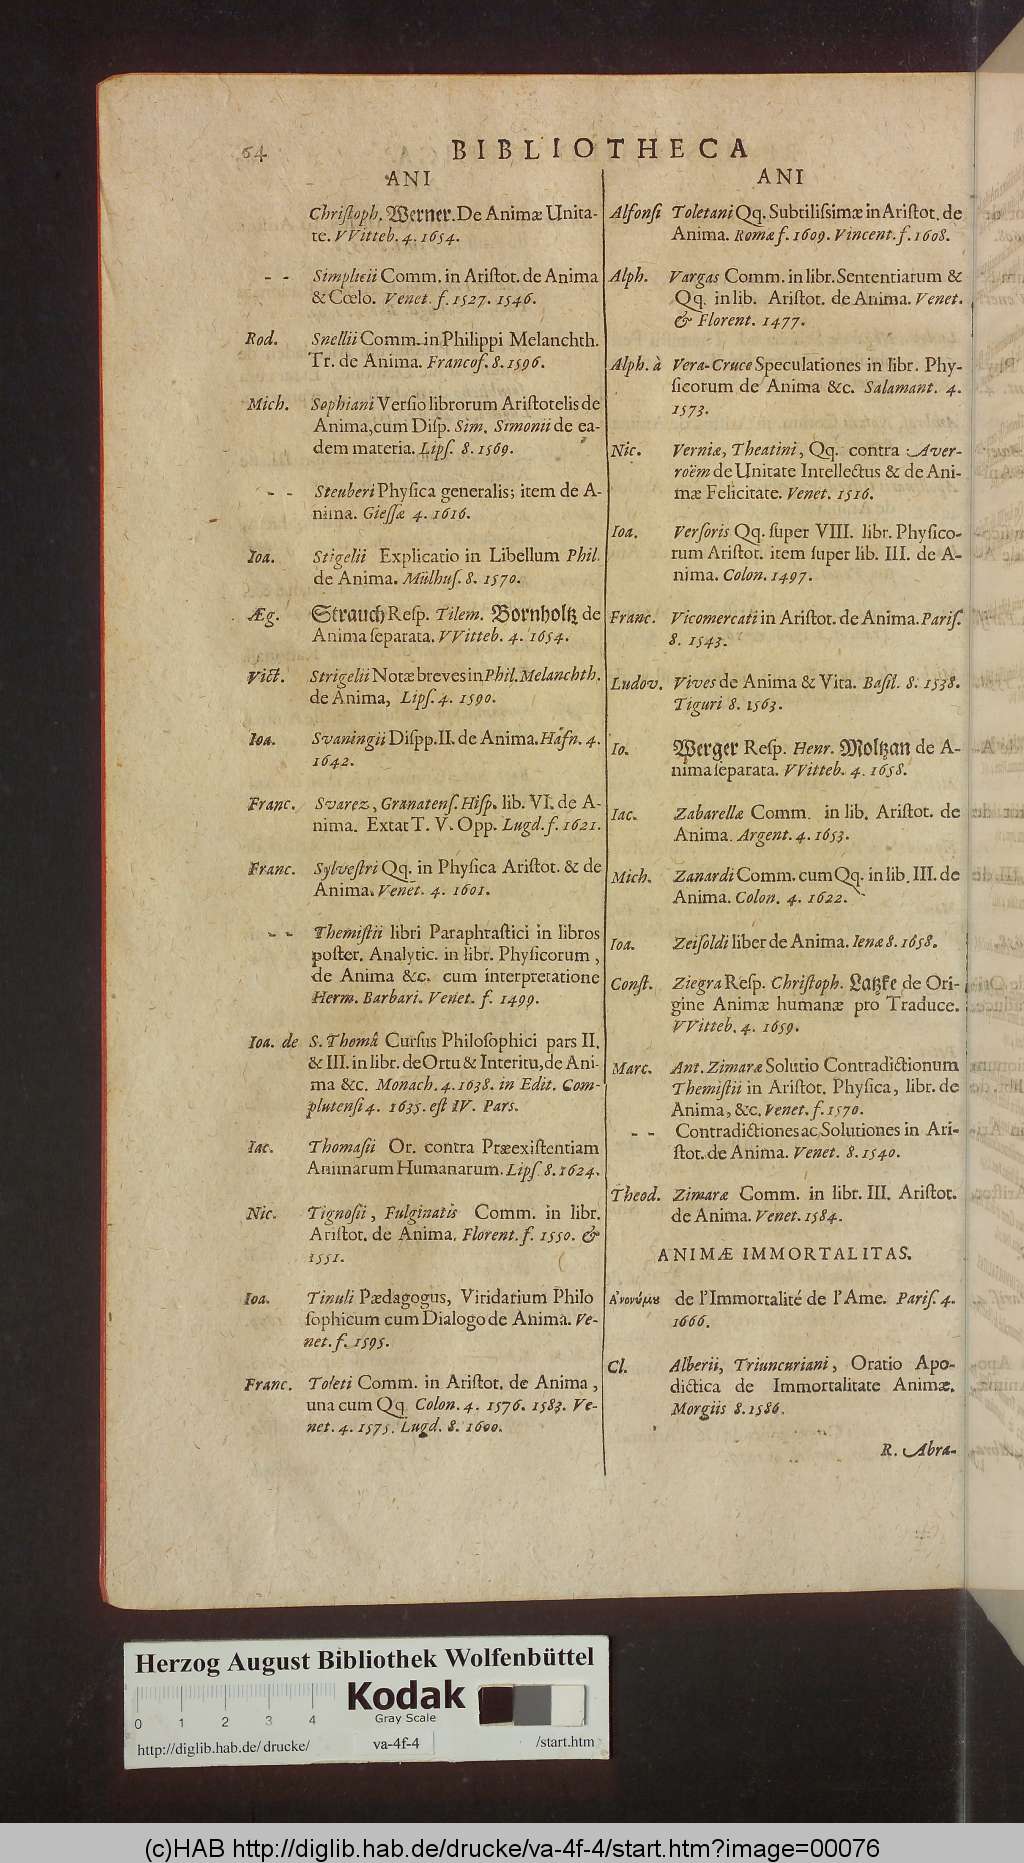 64
BIBLIOTHECA
ANI
Chriſtoph. Werner. De Animæ Unita-
te. VVitteb. 4. 1654.
- - Simplicii Comm. in Ariſtot. de Anima
& Cœlo. Venet. f. 1527. 1546.
Rod. Snellii Comm. in Philippi Melanchth.
Tr. de Anima. Francof. 8. 1596.
Mich. Sophiani Verſio librorum Ariſtotelis de
Anima, cum Diſp. Sim. Simonii de ea-
dem materia. Lipſ. 8. 1569.
- - Steuberi Phyſica generalis; item de A-
nima. Gieſſæ 4. 1616.
Ioa. Stigelii Explicatio in Libellum Phil.
de Anima. Mülhuſ. 8. 1570.
Æg. Strauch Reſp. Tilem. Bornholtz de
Anima ſeparata. VVitteb. 4. 1654.
Vict. Strigelii Notæ breves in Phil. Melanchth.
de Anima, Lipſ. 4. 1590.
Ioa. Svaningii Diſpp. II. de Anima. Hafn. 4.
1642.
Franc. Svarez, Granatenſ. Hiſp. lib. VI. de A-
nima. Extat T. V. Opp. Lugd. f. 1621.
Franc. Sylveſtri Qq. in Phyſica Ariſtot. & de
Anima. Venet. 4. 1601.
- - Themiſtii libri Paraphraſtici in libros
poſter. Analytic. in libr. Phyſicorum,
de Anima &c. cum interpretatione
Herm. Barbari. Venet. f. 1499.
Ioa. de S. Thomâ Curſus Philoſophici pars II.
& III. in libr. de Ortu & Interitu, de Ani-
ma &c. Monach. 4. 1638. in Edit. Com-
plutenſi 4. 1635. eſt IV. Pars.
Iac. Thomaſii Or. contra Præexiſtentiam
Animarum Humanarum. Lipſ. 8. 1624.
Nic. Tignoſii, Fulginatis Comm. in libr.
Ariſtot. de Anima. Florent. f. 1550. &
1551.
Ioa. Tinuli Pædagogus, Viridarium Philo
ſophicum cum Dialogo de Anima. Ve-
net. f. 1595.
Franc. Toleti Comm. in Ariſtot. de Anima,
una cum Qq. Colon. 4. 1576. 1583. Ve-
net. 4. 1575. Lugd. 8. 1600.
ANI
Alfonſi Toletani Qq. Subtiliſsimæ in Ariſtot. de
Anima. Romæ f. 1609. Vincent. f. 1608.
Alph. Vargas Comm. in libr. Sententiarum &
Qq. in lib. Ariſtot. de Anima. Venet.
& Florent. 1477.
Alph. à Vera-Cruce Speculationes in libr. Phy-
ſicorum de Anima &c. Salamant. 4.
1573.
Nic. Verniæ, Theatini, Qq. contra Aver-
roëm de Unitate Intellectus & de Ani-
mæ Felicitate. Venet. 1516.
Ioa. Verſoris Qq. ſuper VIII. libr. Phyſico-
rum Ariſtot. item ſuper lib. III. de A-
nima. Colon. 1497.
Franc. Vicomercati in Ariſtot. de Anima. Pariſ.
8. 1543.
Ludov. Vives de Anima & Vita. Baſil. 8. 1538.
Tiguri 8. 1563.
Io. Werger Reſp. Henr. Moltzan de A-
nima ſeparata. VVitteb. 4. 1658.
Iac. Zabarellæ Comm. in lib. Ariſtot. de
Anima. Argent. 4. 1653.
Mich. Zanardi Comm. cum Qq. in lib. III. de
Anima. Colon. 4. 1622.
Ioa. Zeiſoldi liber de Anima. Ienæ 8. 1658.
Conſt. Ziegra Reſp. Chriſtoph. Latzke de Ori-
gine Animæ humanæ pro Traduce.
VVitteb. 4. 1659.
Marc. Ant. Zimaræ Solutio Contradictionum
Themiſtii in Ariſtot. Phyſica, libr. de
Anima, &c. Venet. f. 1570.
- - Contradictiones ac Solutiones in Ari-
ſtot. de Anima. Venet. 8. 1540.
Theod. Zimaræ Comm. in libr. III. Ariſtot.
de Anima. Venet. 1584.
ANIMÆ IMMORTALITAS.
Ἀνονύμου de l'Immortalité de l'Ame. Pariſ. 4.
1666.
Cl. Alberii, Triuncuriani, Oratio Apo-
dictica de Immortalitate Animæ.
Morgiis 8. 1586.
R. Abra-
Herzog August Bibliothek Wolfenbüttel
Kodak
Gray Scale
0 1 2 3 4
http://diglib.hab.de/drucke/ va-4f-4 /start.htm
(c)HAB http://diglib.hab.de/drucke/va-4f-4/start.htm?image=00076